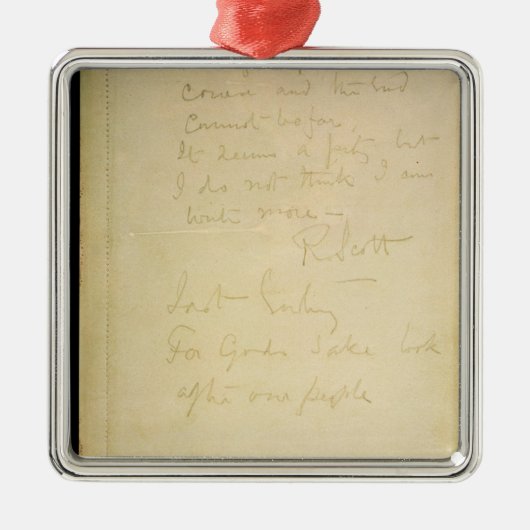 course and the end
cannot be far,
It seems a pity but
I do not think I can
write more –
R. Scott
Last Entry
For Gods sake look
after our people